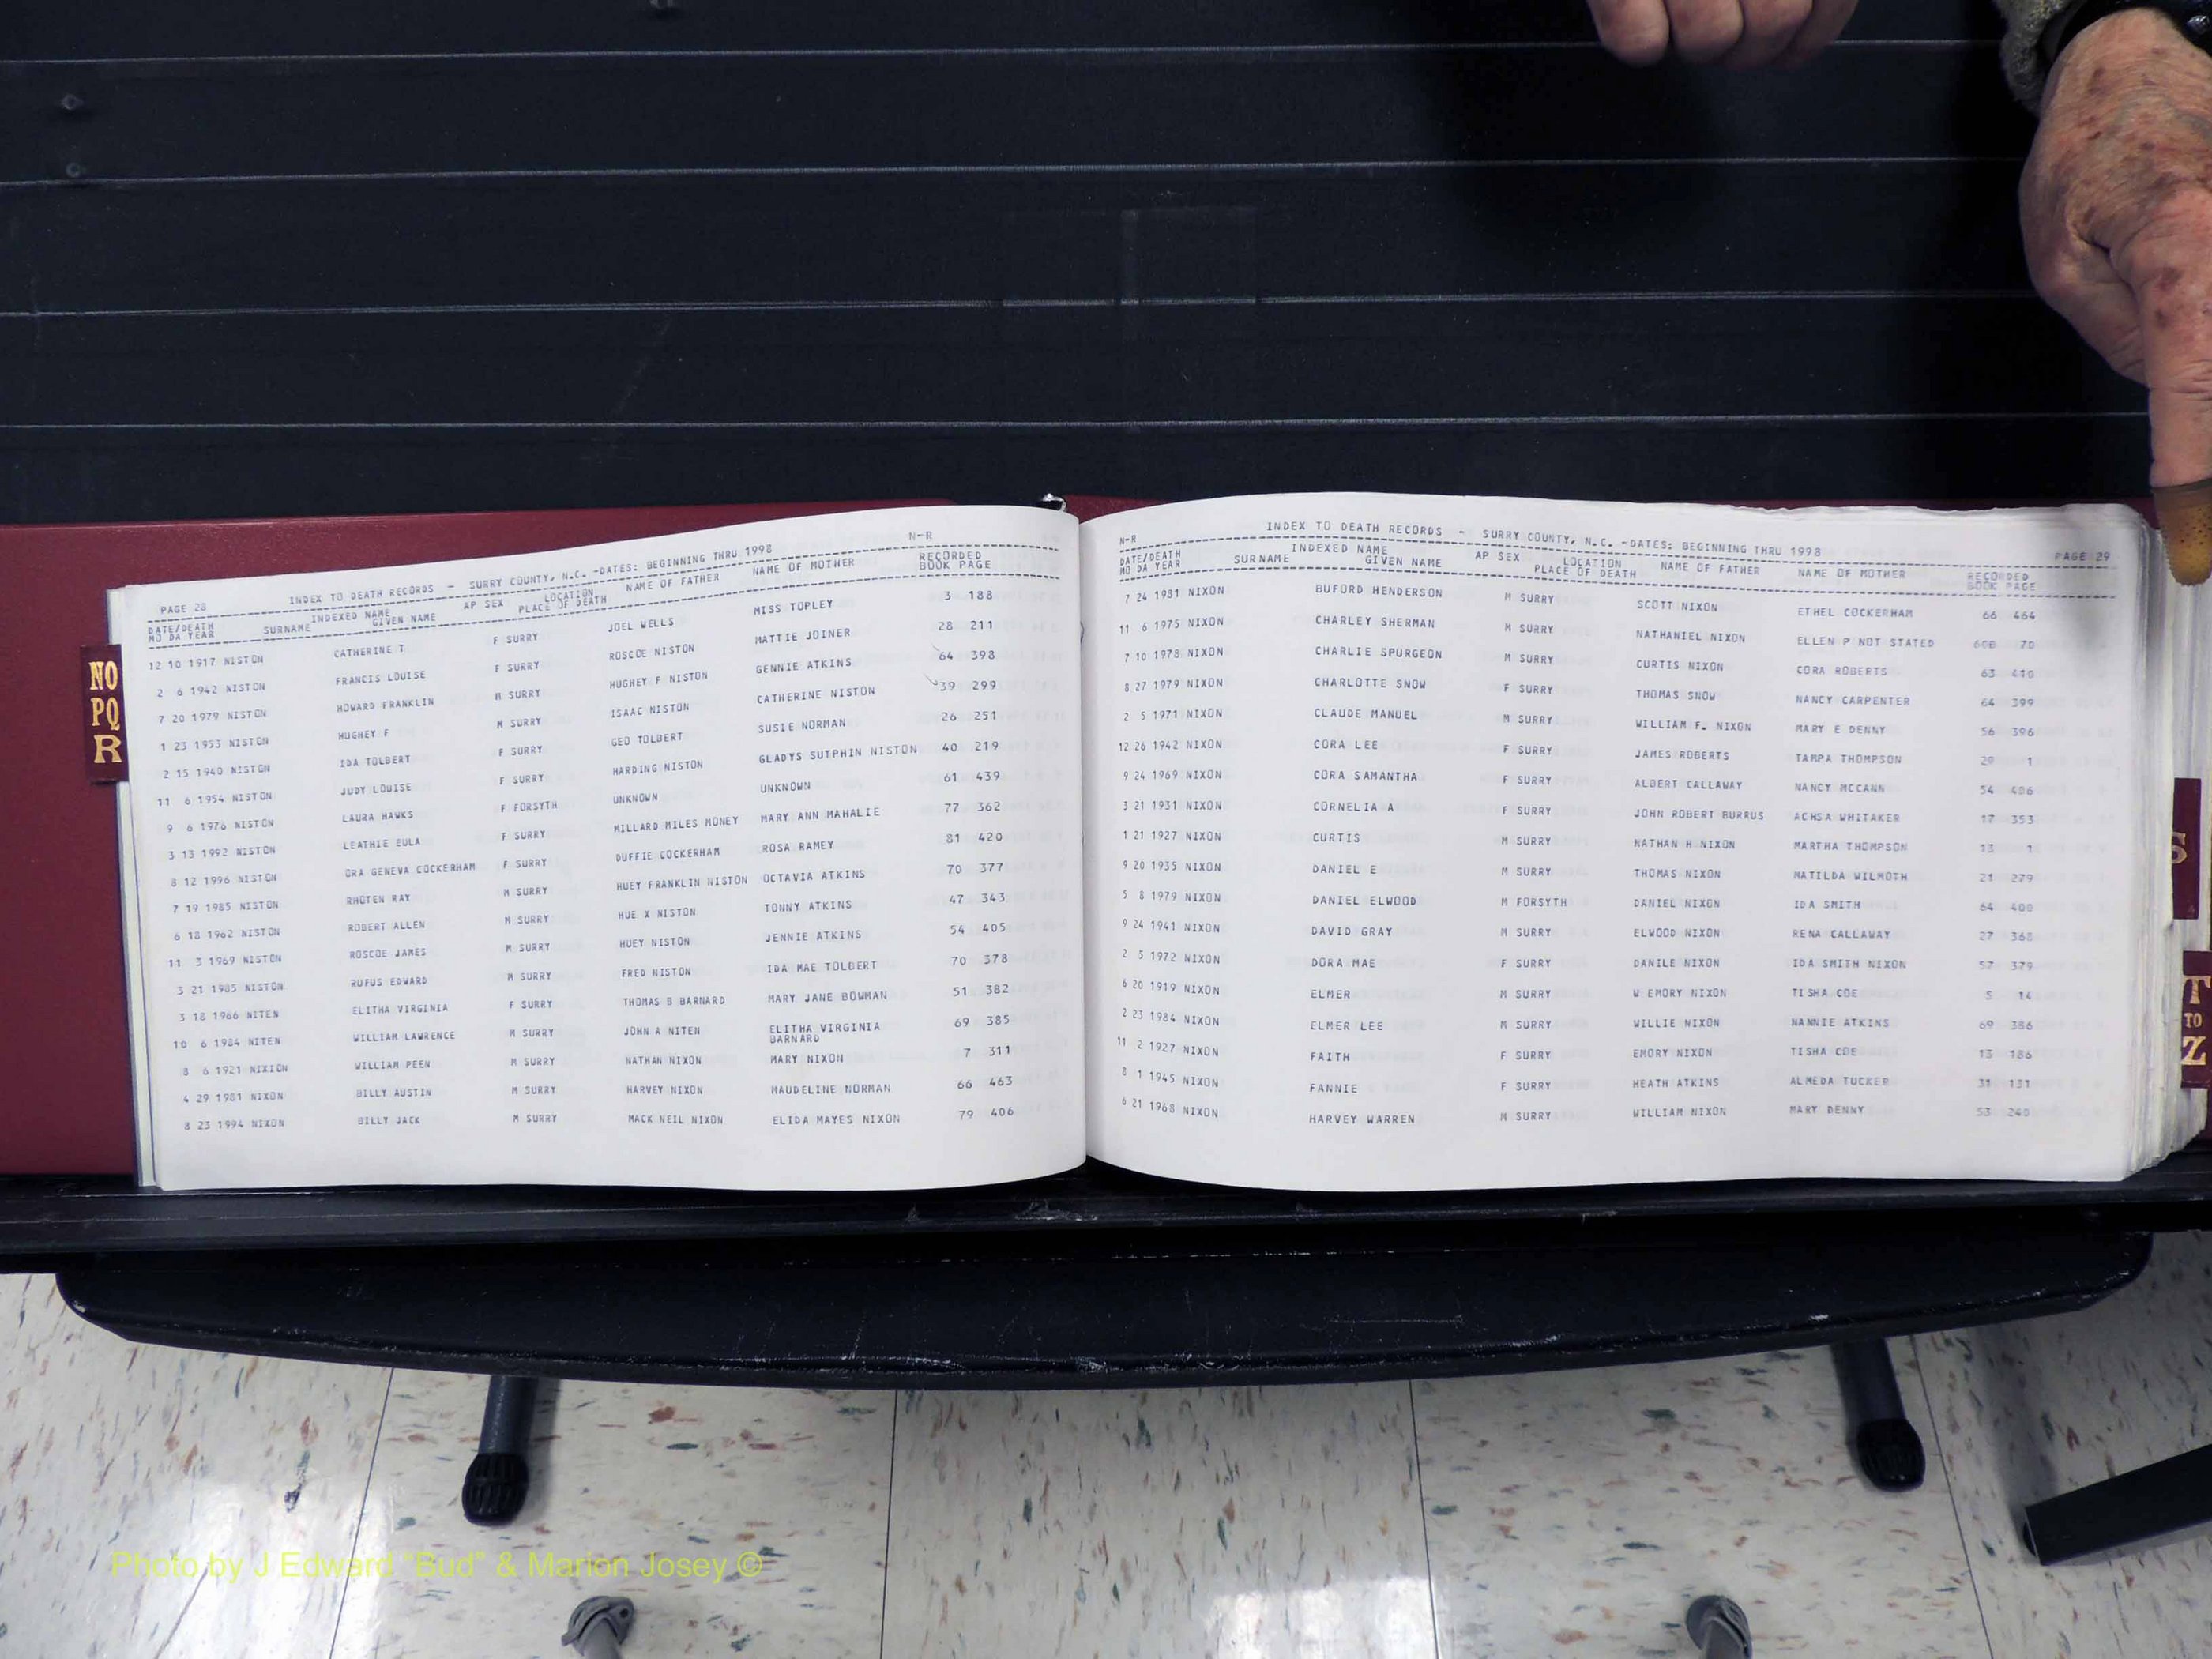 PAGE 28 INDEX TO DEATH RECORDS - SURRY COUNTY, N.C. -DATES: BEGINNING THRU 1998 N-R
DATE/DEATH INDEXED NAME AP SEX LOCATION NAME OF FATHER NAME OF MOTHER RECORDED
MO DA YEAR SURNAME GIVEN NAME PLACE OF DEATH BOOK PAGE
12 10 1917 NISTON CATHERINE T F SURRY JOEL WELLS MISS TOPLEY 3 188
2 6 1942 NISTON FRANCIS LOUISE F SURRY ROSCOE NISTON MATTIE JOINER 28 211
7 20 1979 NISTON HOWARD FRANKLIN M SURRY HUGHEY F NISTON GENNIE ATKINS 64 398
1 23 1953 NISTON HUGHEY F M SURRY ISAAC NISTON CATHERINE NISTON 39 299
2 15 1940 NISTON IDA TOLBERT F SURRY GEO TOLBERT SUSIE NORMAN 26 251
11 6 1954 NISTON JUDY LOUISE F SURRY HARDING NISTON GLADYS SUTPHIN NISTON 40 219
9 6 1976 NISTON LAURA HAWKS F FORSYTH UNKNOWN UNKNOWN 61 439
3 13 1992 NISTON LEATHIE EULA F SURRY MILLARD MILES MONEY MARY ANN MAHALIE 77 362
8 12 1996 NISTON ORA GENEVA COCKERHAM F SURRY DUFFIE COCKERHAM ROSA RAMEY 81 420
7 19 1985 NISTON RHOTEN RAY M SURRY HUEY FRANKLIN NISTON OCTAVIA ATKINS 70 377
6 18 1962 NISTON ROBERT ALLEN M SURRY HUE X NISTON TONNY ATKINS 47 343
11 3 1969 NISTON ROSCOE JAMES M SURRY HUEY NISTON JENNIE ATKINS 54 405
3 21 1985 NISTON RUFUS EDWARD M SURRY FRED NISTON IDA MAE TOLBERT 70 378
3 18 1966 NITEN ELITHA VIRGINIA F SURRY THOMAS B BARNARD MARY JANE BOWMAN 51 382
10 6 1984 NITEN WILLIAM LAWRENCE M SURRY JOHN A NITEN ELITHA VIRGINIA 69 385
BARNARD
8 6 1921 NIXION WILLIAM PEEN M SURRY NATHAN NIXON MARY NIXON 7 311
4 29 1981 NIXON BILLY AUSTIN M SURRY HARVEY NIXON MAUDELINE NORMAN 66 463
8 23 1994 NIXON BILLY JACK M SURRY MACK NEIL NIXON ELIDA MAYES NIXON 79 406
N-R INDEX TO DEATH RECORDS - SURRY COUNTY, N.C. -DATES: BEGINNING THRU 1998 PAGE 29
DATE/DEATH INDEXED NAME AP SEX LOCATION NAME OF FATHER NAME OF MOTHER RECORDED
MO DA YEAR SURNAME GIVEN NAME PLACE OF DEATH BOOK PAGE
7 24 1981 NIXON BUFORD HENDERSON M SURRY SCOTT NIXON ETHEL COCKERHAM 66 464
11 6 1975 NIXON CHARLEY SHERMAN M SURRY NATHANIEL NIXON ELLEN P NOT STATED 60B 70
7 10 1978 NIXON CHARLIE SPURGEON M SURRY CURTIS NIXON CORA ROBERTS 63 410
8 27 1979 NIXON CHARLOTTE SNOW F SURRY THOMAS SNOW NANCY CARPENTER 64 399
2 5 1971 NIXON CLAUDE MANUEL M SURRY WILLIAM F. NIXON MARY E DENNY 56 396
12 26 1942 NIXON CORA LEE F SURRY JAMES ROBERTS TAMPA THOMPSON 1
9 24 1969 NIXON CORA SAMANTHA F SURRY ALBERT CALLAWAY NANCY MCCANN 54 406
3 21 1931 NIXON CORNELIA A F SURRY JOHN ROBERT BURRUS ACHSA WHITAKER 17 353
1 21 1927 NIXON CURTIS M SURRY NATHAN H NIXON MARTHA THOMPSON 13 1
9 20 1935 NIXON DANIEL E M SURRY THOMAS NIXON MATILDA WILMOTH 21 279
5 8 1979 NIXON DANIEL ELWOOD M FORSYTH DANIEL NIXON IDA SMITH 64 400
9 24 1941 NIXON DAVID GRAY M SURRY ELWOOD NIXON RENA CALLAWAY 27 368
2 5 1972 NIXON DORA MAE F SURRY DANILE NIXON IDA SMITH NIXON 57 379
6 20 1919 NIXON ELMER M SURRY W EMORY NIXON TISHA COE 5 14
2 23 1984 NIXON ELMER LEE M SURRY WILLIE NIXON NANNIE ATKINS 69 386
11 2 1927 NIXON FAITH F SURRY EMORY NIXON TISHA COE 13 186
8 1 1945 NIXON FANNIE F SURRY HEATH ATKINS ALMEDA TUCKER 31 131
6 21 1968 NIXON HARVEY WARREN M SURRY WILLIAM NIXON MARY DENNY 53 240
NO
PQ
R
S
T
TO
Z
Photo by J Edward "Bud" & Marion Josey ©